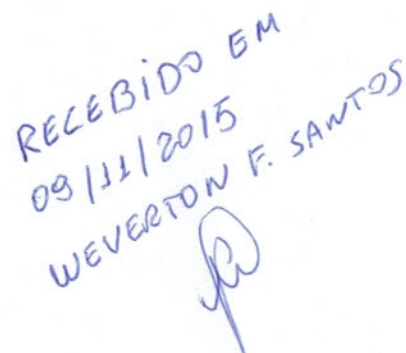 RECEBIDO EM
09/11/2015
WEVERTON F. SANTOS